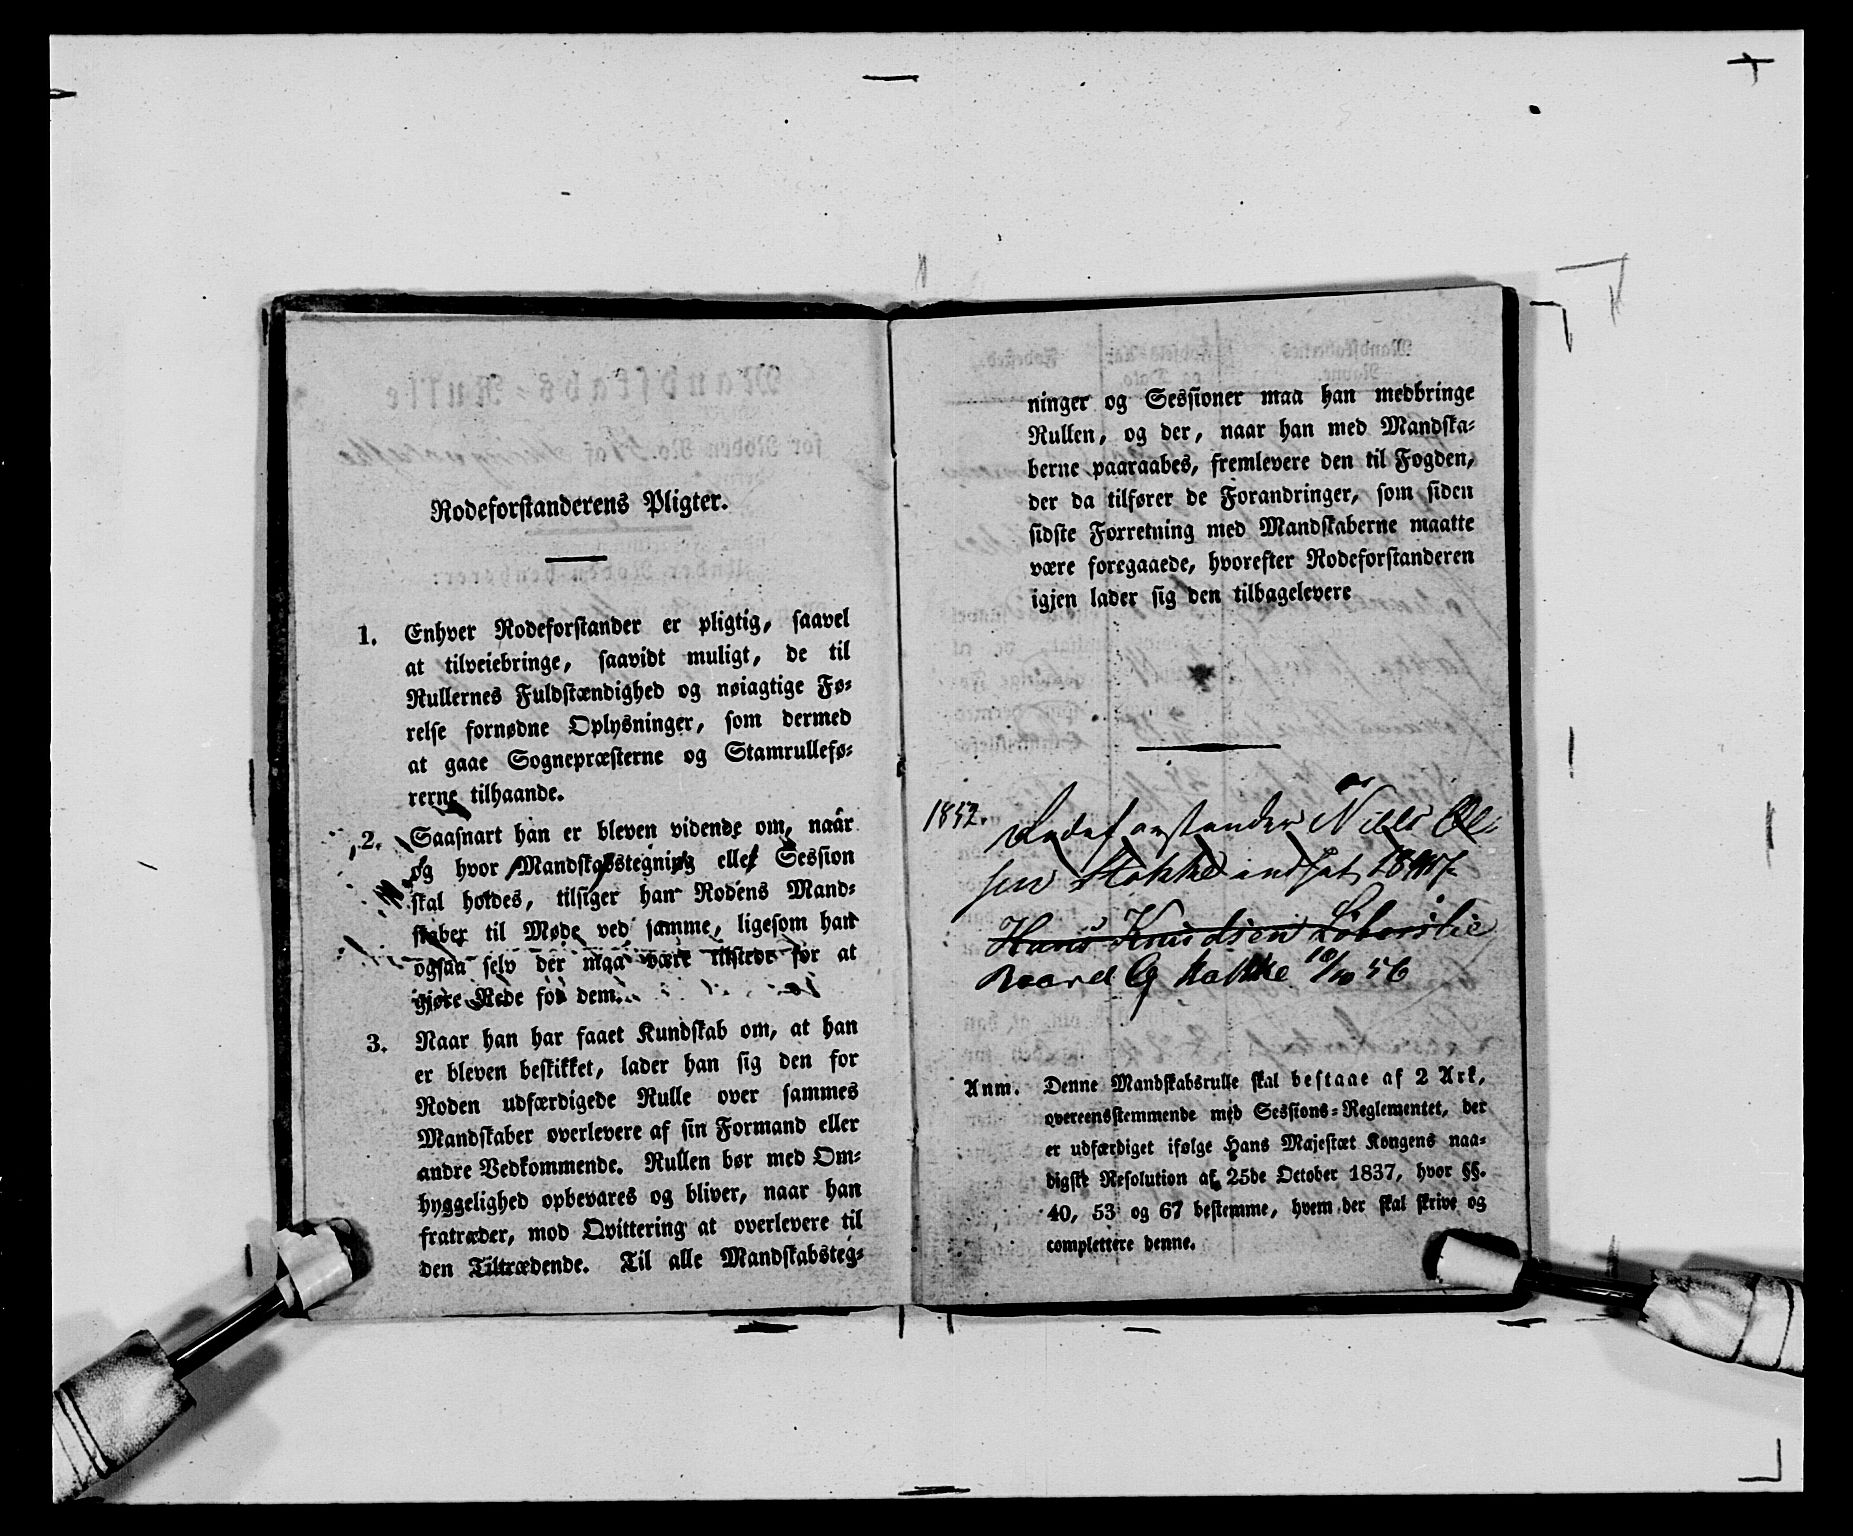 Rodeforstanderens Pligter.
1. Enhver Rodeforstander er pligtig, saavel
at tilveiebringe, saavidt muligt, de til
Rullernes Fuldstændighed og nøiagtige Fø-
relse fornødne Oplysninger, som dermed
at gaae Sognepræsterne og Stamrullefø-
rerne tilhaande.
2. Saasnart han er bleven vidende om, naar
og hvor Mandskabstegning eller Session
skal holdes, tilsiger han Rodens Mand-
skaber til Møde ved samme, ligesom han
ogsaa selv der maa være tilstede for at
gjøre Rede for dem.
3. Naar han har faaet Kundskab om, at han
er bleven beskikket, lader han sig den for
Roden udfærdigede Rulle over sammes
Mandskaber overlevere af sin Formand eller
andre Vedkommende. Rullen bør med Om-
hyggelighed opbevares og bliver, naar han
fratræder, mod Qvittering at overlevere til
den Tiltrædende. Til alle Mandskabsteg-
ninger og Sessioner maa han medbringe
Rullen, og der, naar han med Mandska-
berne paaraabes, fremlevere den til Fogden,
der da tilfører de Forandringer, som siden
sidste Forretning med Mandskaberne maatte
være foregaaede, hvorefter Rodeforstanderen
igjen lader sig den tilbagelevere
1852. Rodeforstander Niels Ol-
sen Stokke indsat
Hans Knudsen
18/10 56
Anm. Denne Mandskabsrulle skal bestaae af 2 Ark,
overeensstemmende med Sessions-Reglementet, der
er udfærdiget ifølge Hans Majestæt Kongens naa-
digste Resolution af 25de October 1837, hvor §§.
40, 53 og 67 bestemme, hvem der skal skrive og
complettere denne.